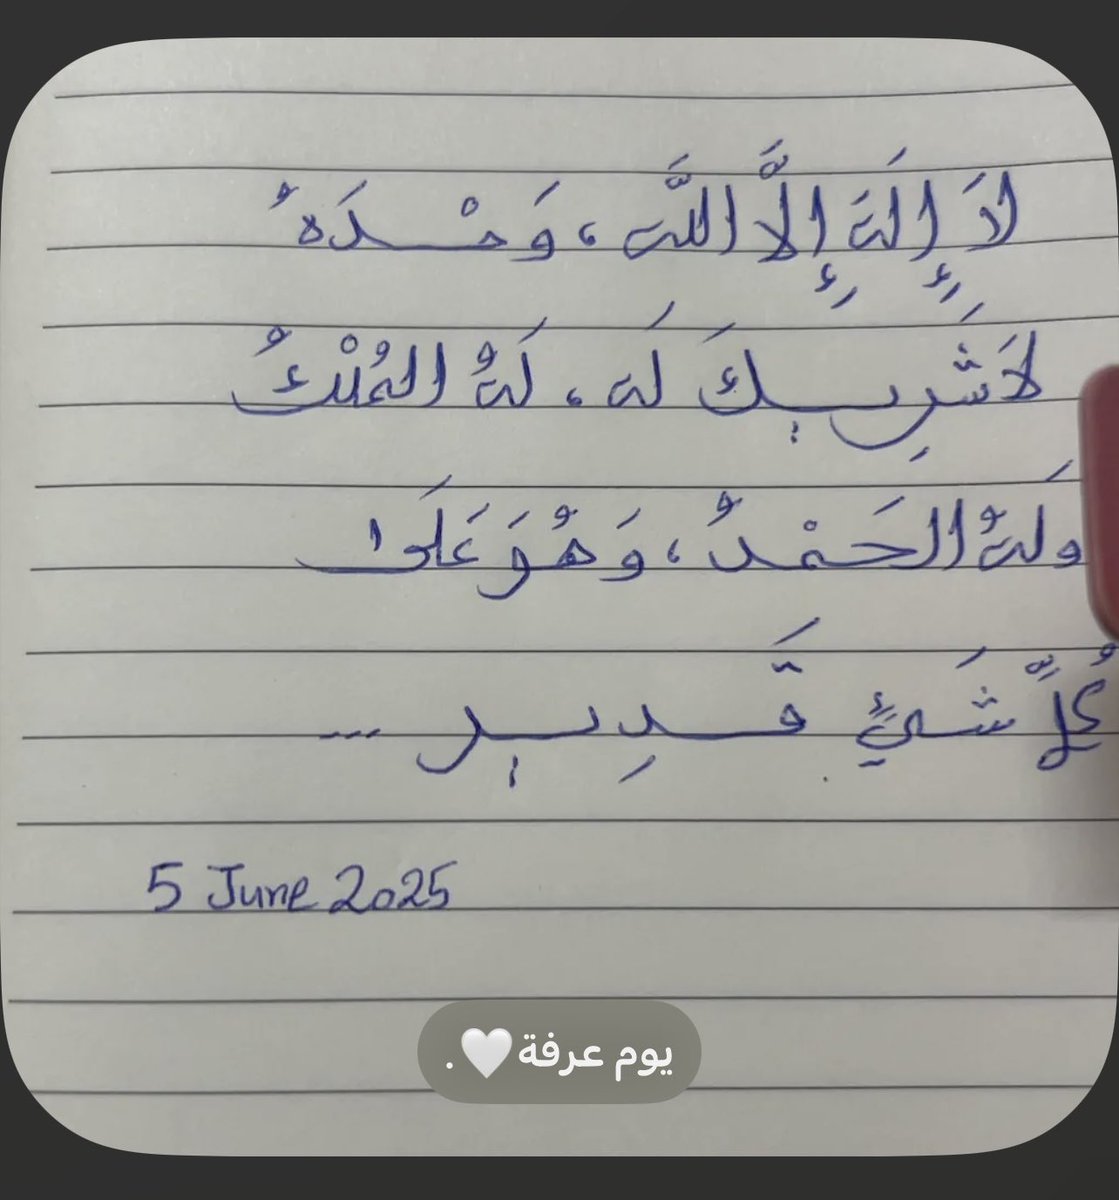 لَا إِلَهَ إِلَّا اللَّه، وَحْدَهُ
لَا شَرِيكَ لَه، لَهُ الْمُلْكُ
وَلَهُ الحَمْدُ، وَهُوَ عَلَى
كُلِّ شَيْءٍ قَدِير ...
5 June 2025
يوم عرفة🤍.